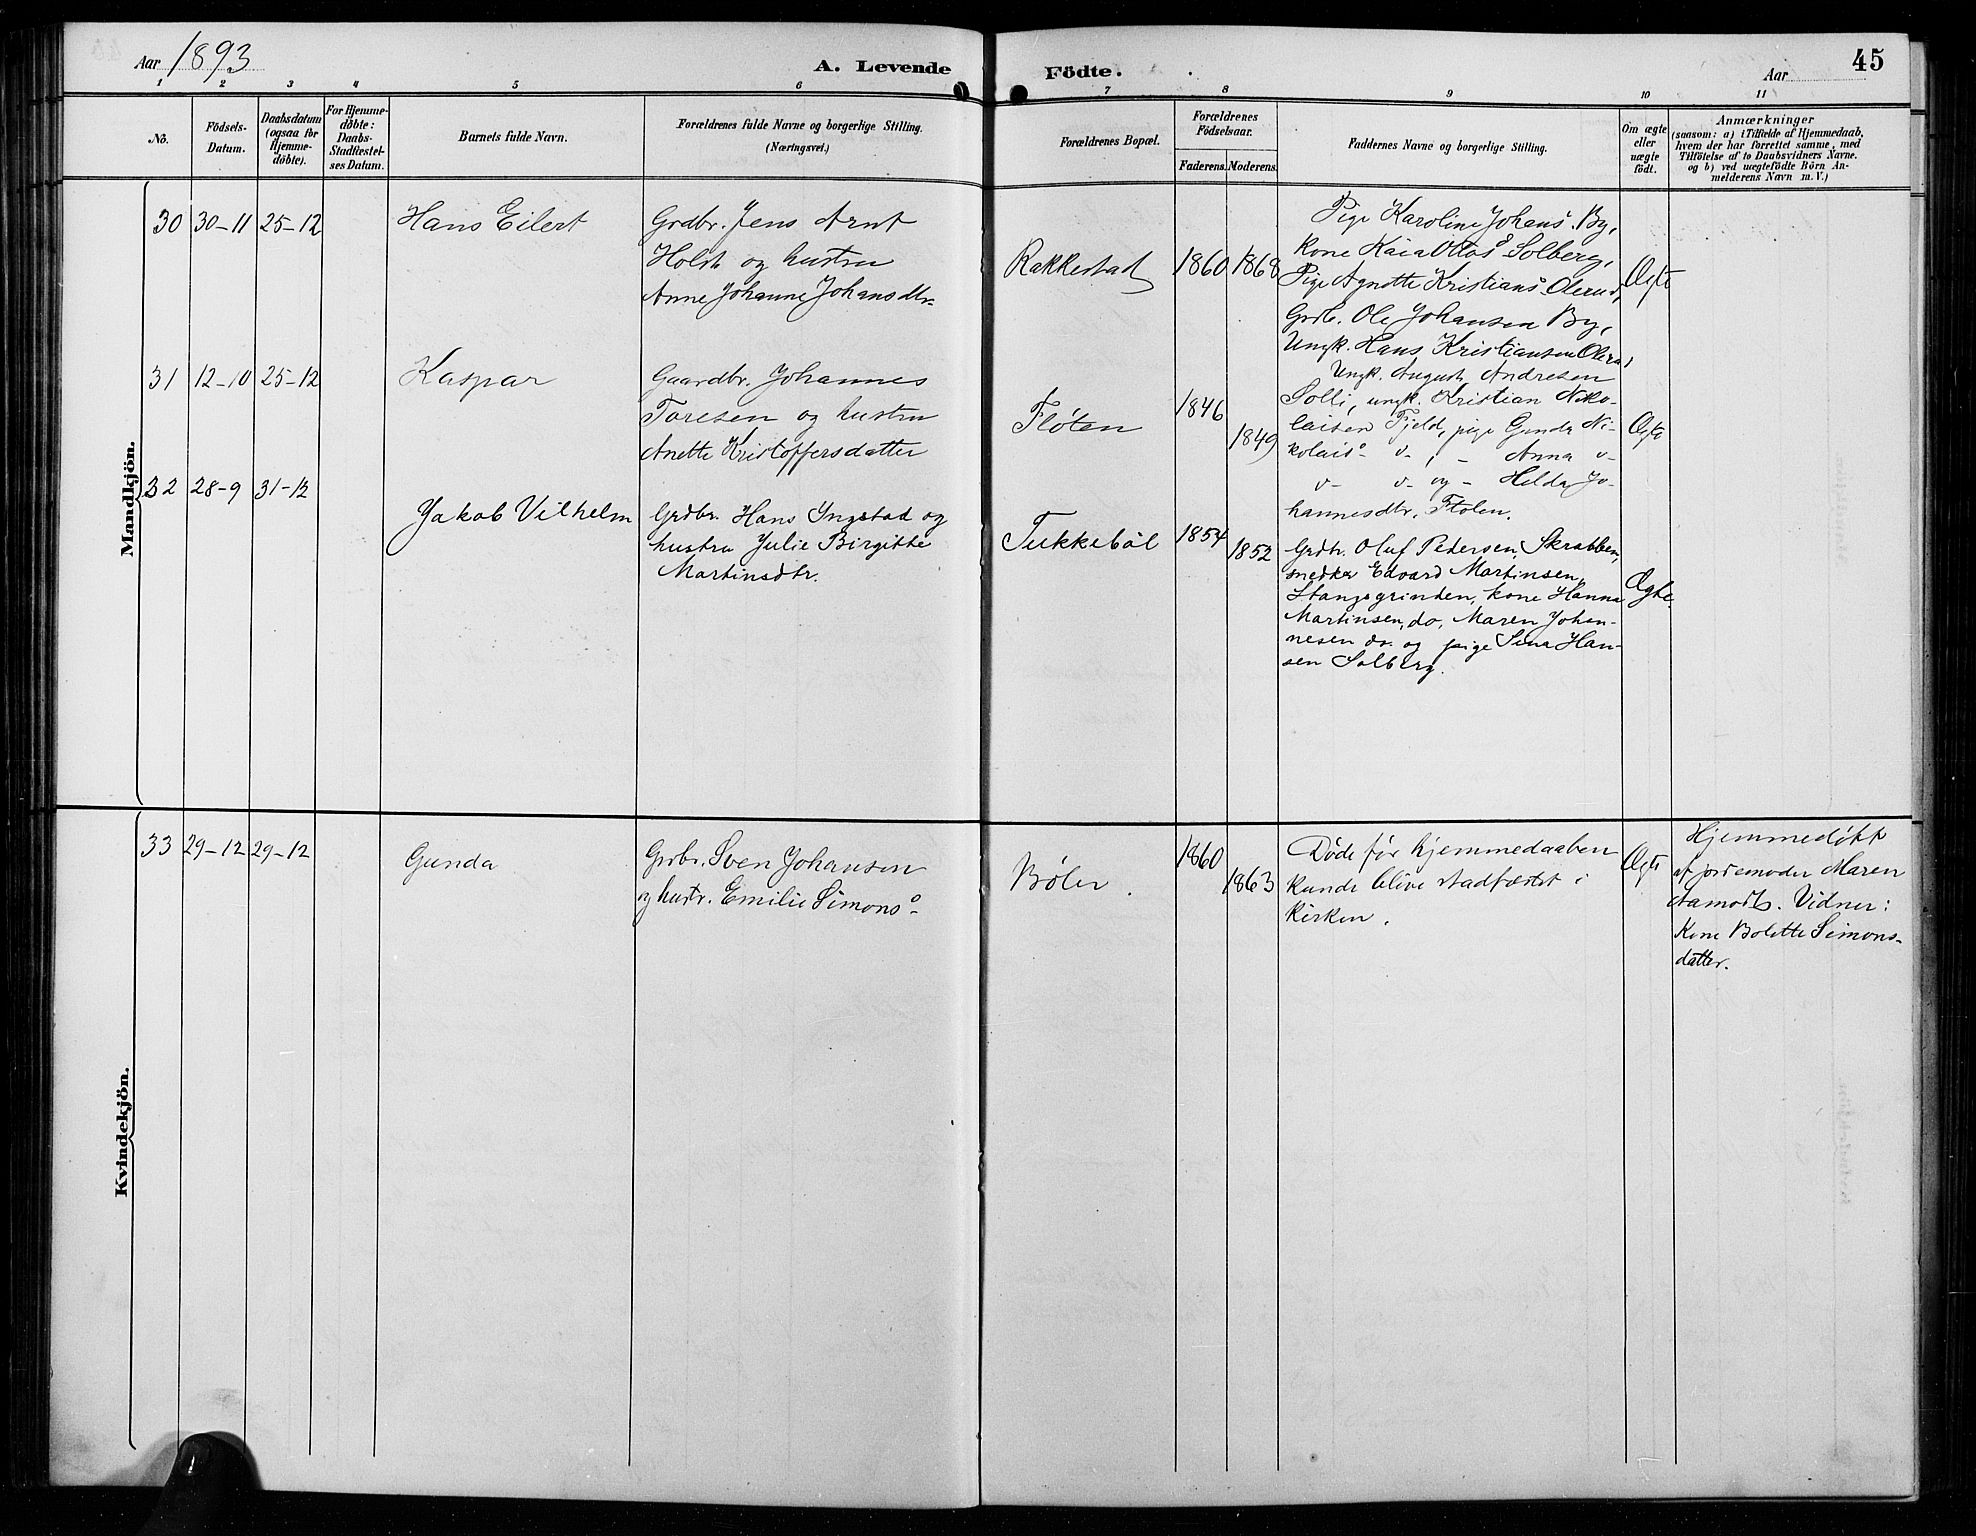 Aar 1893
A. Levende
Födte.
Aar
45
1 2 3 4 5 6 7 8 9 10 11
No.
Födsels-
Datum.
Daabsdatum
(ogsaa for
Hjemme-
döbte).
For Hjemme-
döbte:
Daabs-
Stadfæstel-
ses Datum.
Barnets fulde Navn.
Forældrenes fulde Navne og borgerlige Stilling.
(Næringsvei.)
Forældrenes Bopæl.
Forældrenes
Födselsaar.
Faderens. Moderens.
Faddernes Navne og borgerlige Stilling.
Om ægte
eller
uægte
födt.
Anmærkninger
(saasom: a) i Tilfælde af Hjemmedaab,
hvem der har forrettet samme, med
Tilföielse af to Daabsvidners Navne.
og b) ved uægtefödte Börn An-
melderens Navn m. V.)
Mandkjön.
30 30-11 25-12
Hans Eilert
Grdbr. Jens Arnt
Holst og hustru
Anne Johanne Johansdtr.
Rakkestad
1860 1868
Pige Karoline Johans. By,
kone Kaia Ottos. Solberg,
Pige Agnette Kristians. Olerud,
Grdb. Ole Johansen By,
Ungk. Hans Kristiansen Olerud
Ægte
31 12-10 25-12
Kaspar
Gaardbr. Johannes
Toresen og hustru
Anette Kristoffersdatter
Fløten
1846
1849
Ungk. August Andresen
Solli, ungk. Kristian Niko-
laisen Fjeld, pige Gunda Ni-
kolais. v-, - Anna v-
v- v- og - Helda Jo-
hannesdtr. Fløten.
Ægte
32 28-9 31-12
Jakob Vilhelm
Grdbr. Hans Yngstad og
hustru Julie Birgitte
Martinsdtr.
Tukkebøl
1854
1852
Grdbr. Oluf Pedersen, Skrabben,
snedker Edvard Martinsen,
Stangsgrinden, kone Hanna
Martinsen, do, Maren Johan-
nesen do. og pige Sina Han-
sen Solberg.
Ægte.
Kvindekjön.
33 29-12 29-12
Gunda
Grbr. Sven Johansen
og hustr. Emilie Simons.
Bøler.
1860
1863
Døde før hjemmedaaben
kunde blive stadfæstet i
kirken.
Ægte
Hjemmedøbt
af jordemoder Maren
Aamodt. Vidner:
Kone Bolette Simons-
datter.